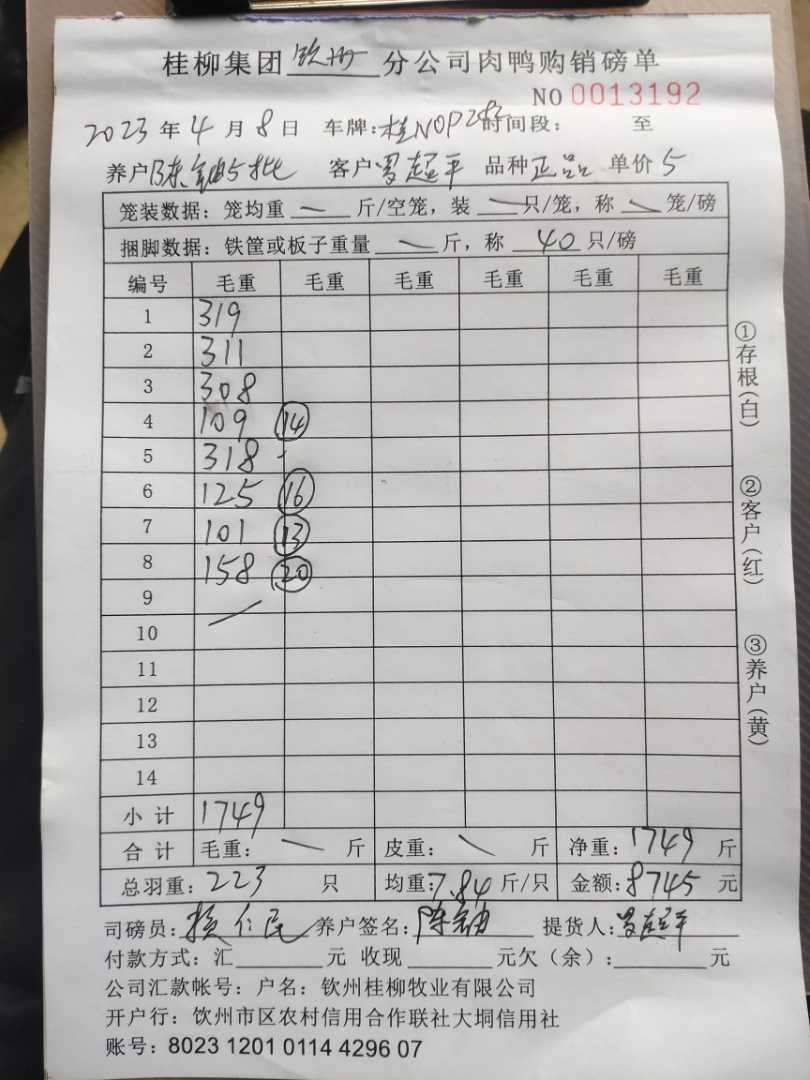 桂柳集团 钦州 分公司肉鸭购销磅单
NO 0013192
2023 年 4 月 8 日 车牌: 桂N0P283 时间段: 至
养户 陈 5批 客户 罗超平 品种 正品 单价 5
笼装数据: 笼均重 — 斤/空笼, 装 — 只/笼, 称 — 笼/磅
捆脚数据: 铁筐或板子重量 — 斤, 称 40 只/磅
编号 毛重 毛重 毛重 毛重 毛重 毛重
1 319
2 311
3 308
4 109 14
5 318
6 125 16
7 101 13
8 158 20
9
10
11
12
13
14
小 计 1749
合 计 毛重: — 斤 皮重: — 斤 净重: 1749 斤
总羽重: 223 只 均重: 7.84 斤/只 金额: 8745 元
司磅员: 仁民 养户签名: 陈 提货人: 罗超平
付款方式: 汇 元 收现 元欠（余）: 元
公司汇款帐号: 户名: 钦州桂柳牧业有限公司
开户行: 饮州市区农村信用合作联社大垌信用社
账号: 8023 1201 0114 4296 07
①存根（白）
②客户（红）
③养户（黄）